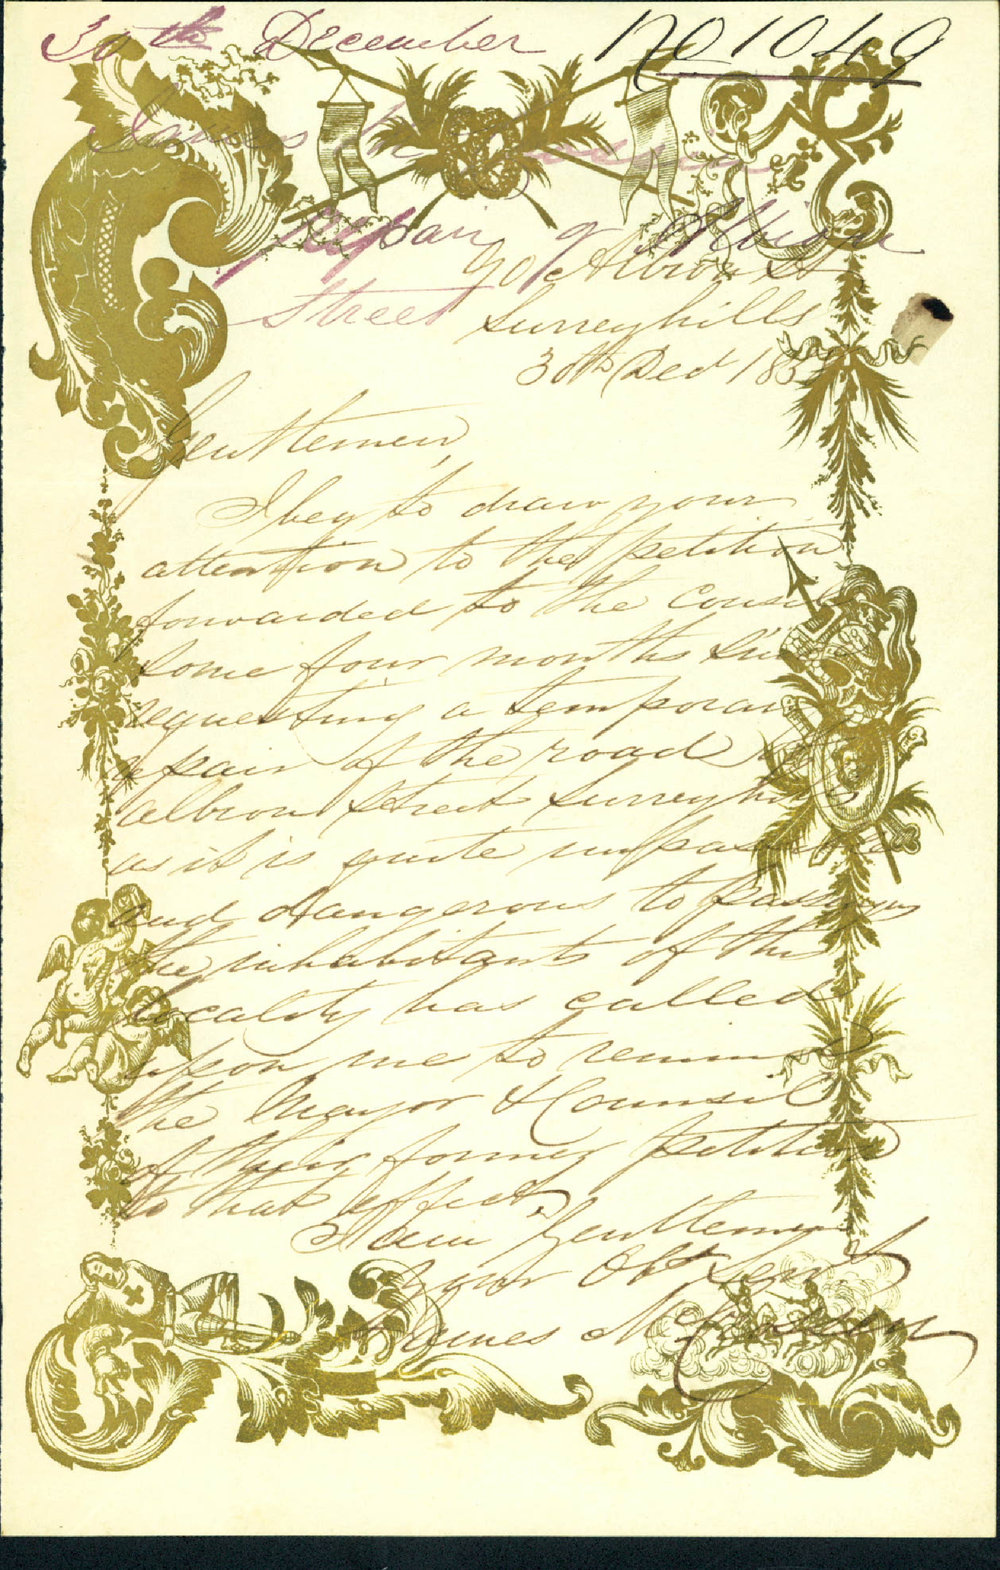 30th December No 1049
James
Repair of Albion
Street
90 Albion St
Surreyhills
30th Decr 185
Gentlemen,
I beg to draw your
attention to the petition
forwarded to the Council
some four months since
requesting a temporary
repair of the road
Albion Street Surreyhills
as it is quite impassable
and dangerous to passengers
the inhabitants of this
locality has called
upon me to remind
the Mayor & Counsil
of their former petition
to that effect.
I am Gentlemen
Your Obt Servt
James